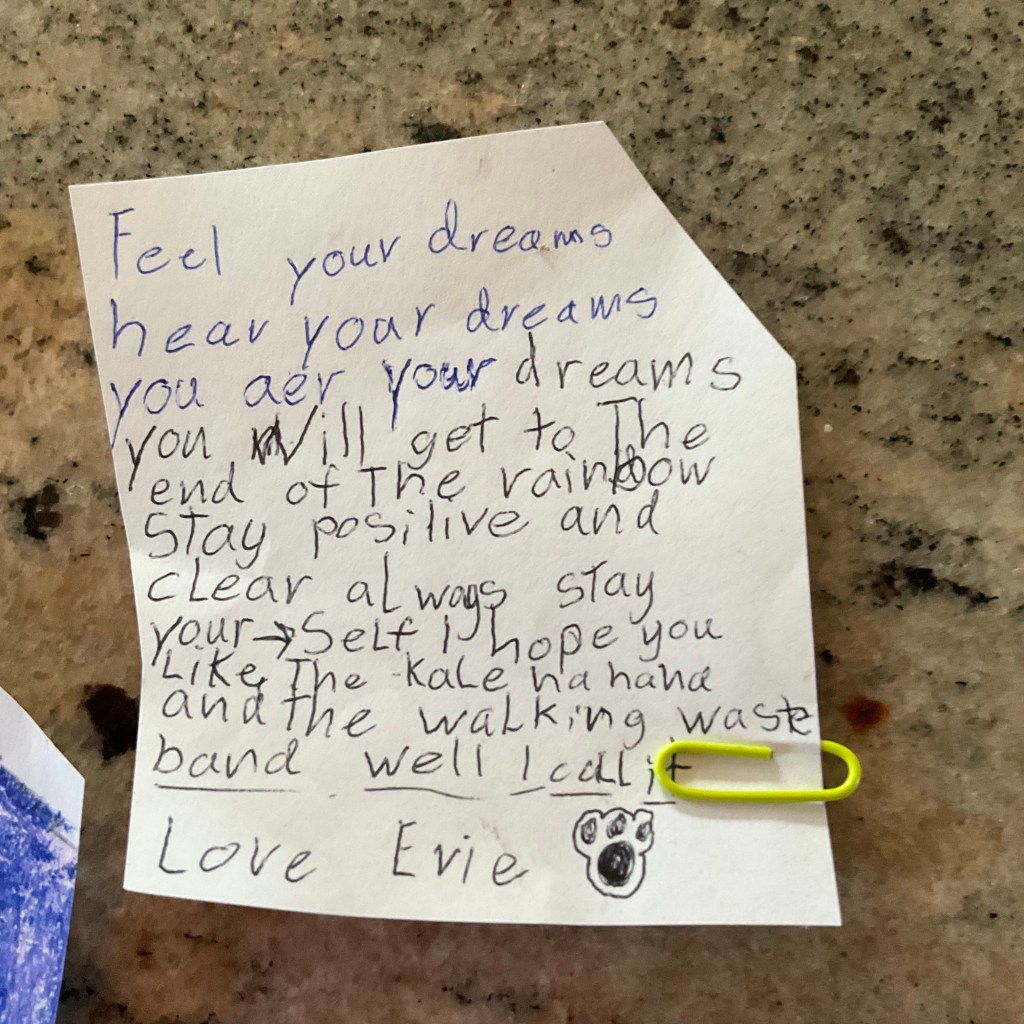 Feel your dreams
hear your dreams
you aer your dreams
you Will get to The
end of The rainbow
Stay posilive and
clear always stay
your→Self I hope you
Like The kale na hana
and The walking waste
band well I call it
Love Evie